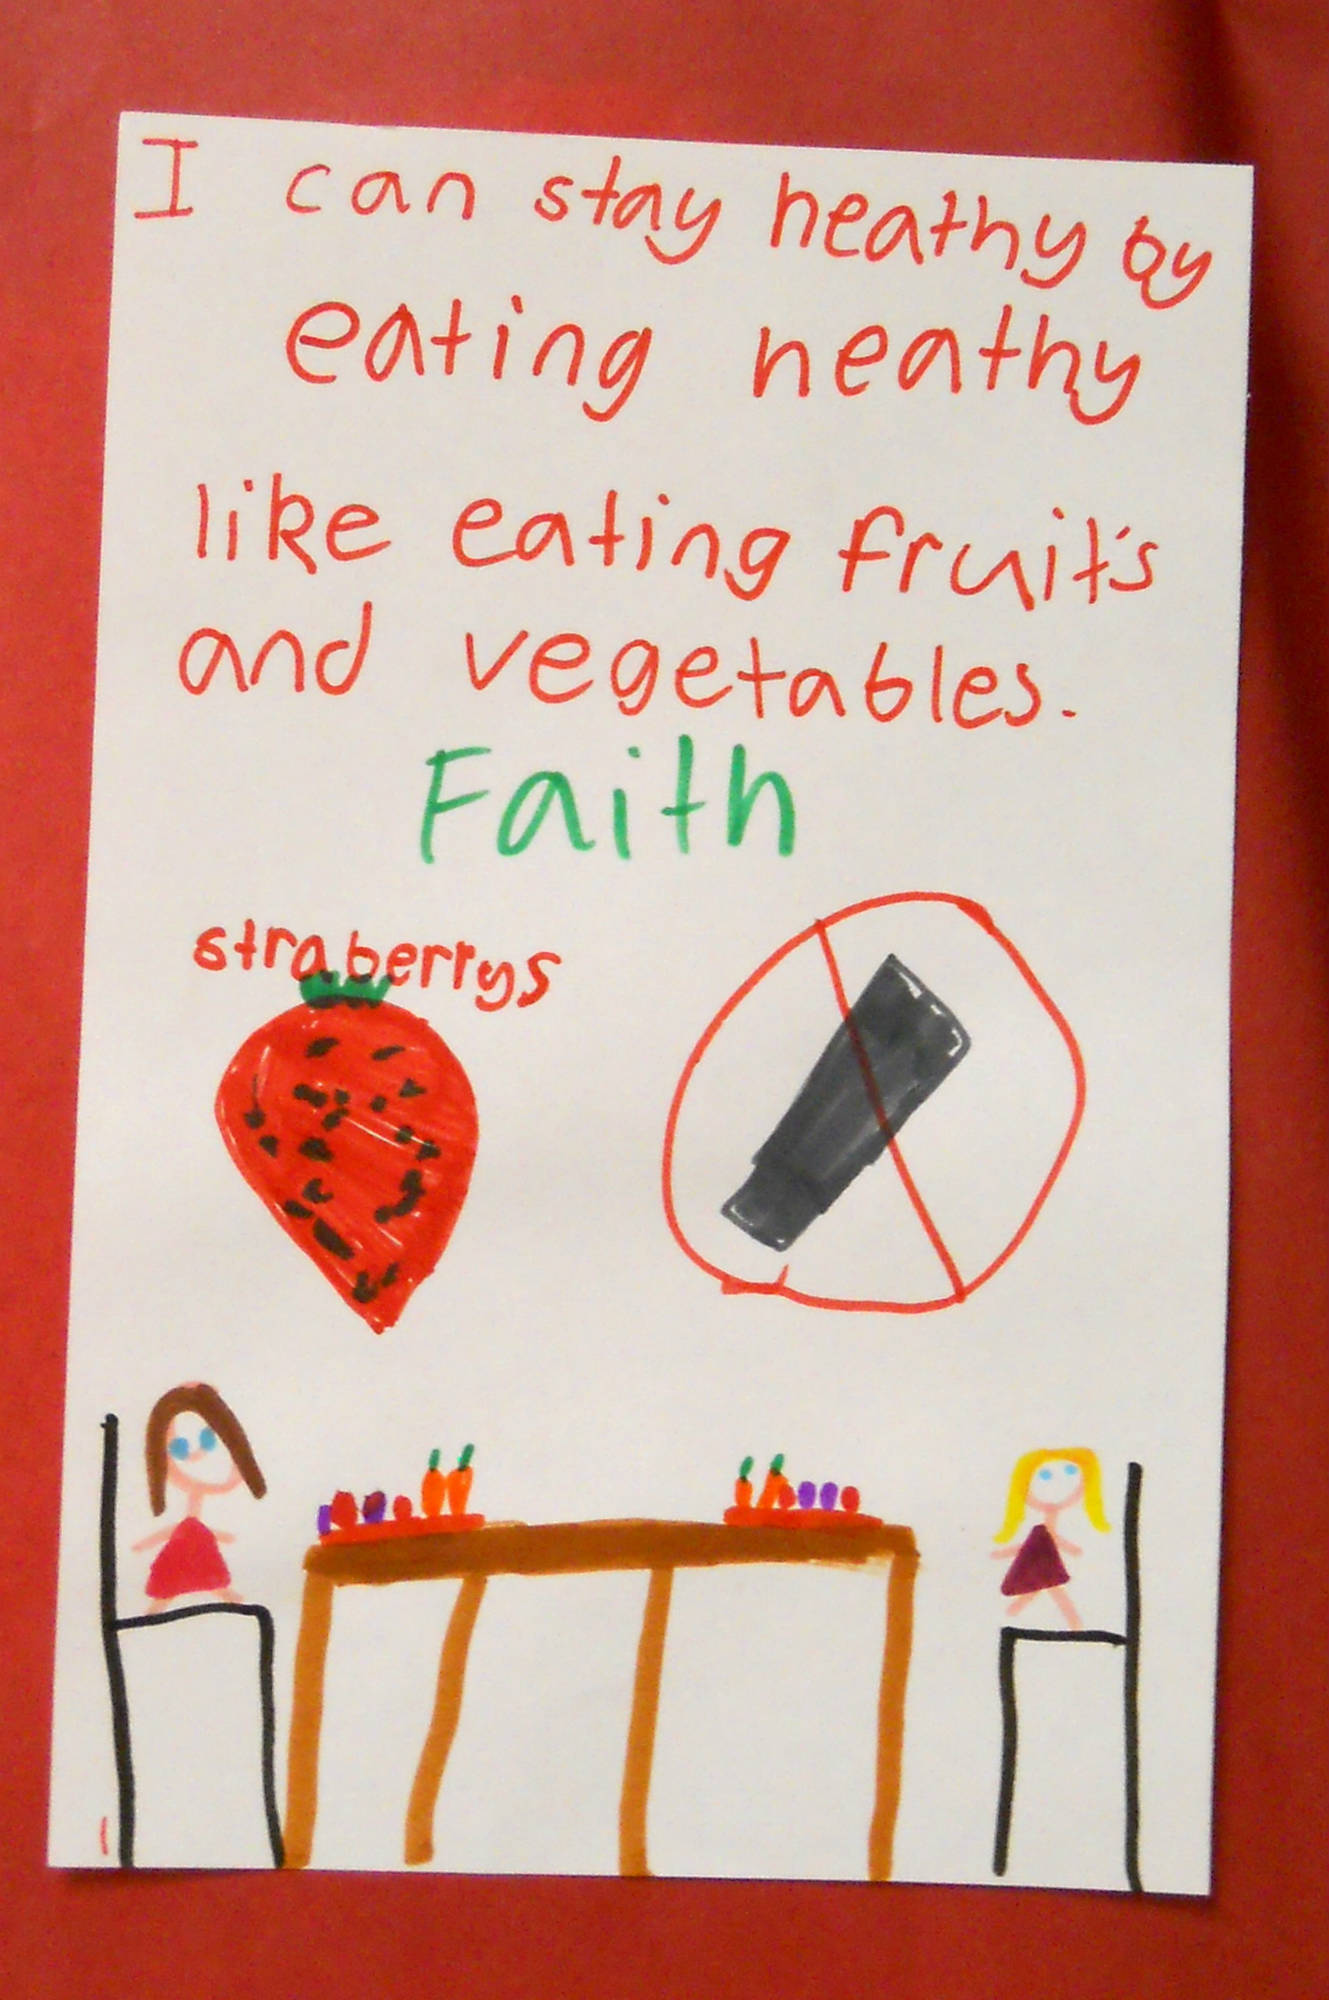 I can stay heathy by
eating heathy
like eating fruit's
and vegetables.
Faith
straberrys